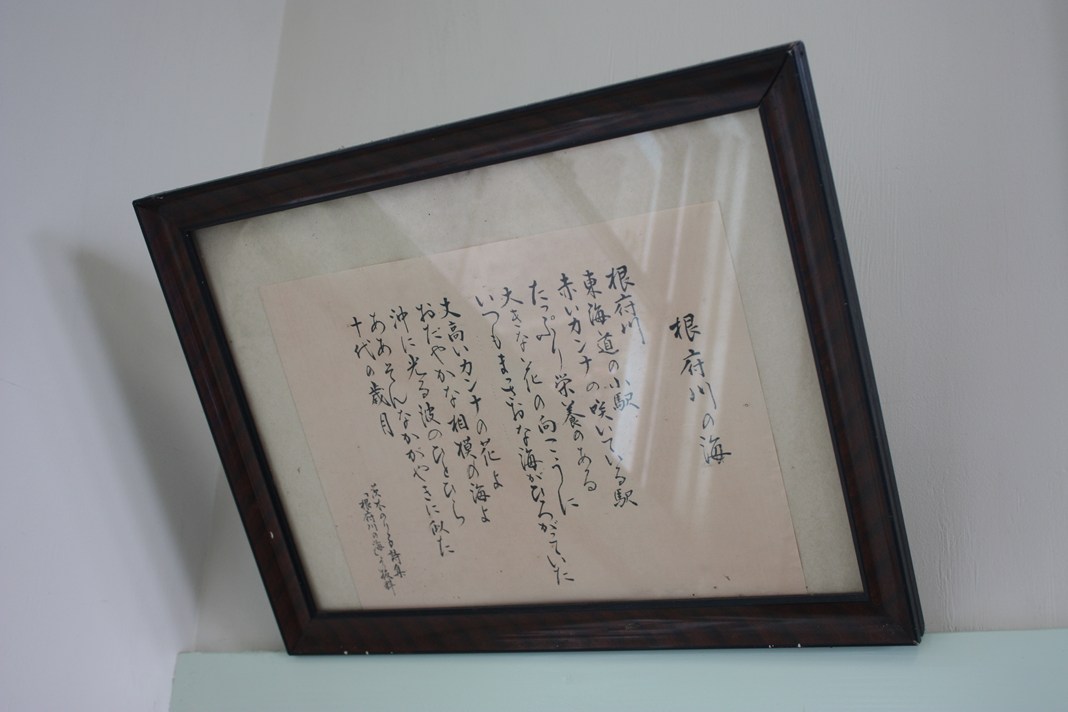 根府川の海
根府川
東海道の小駅
赤いカンナの咲いている駅
たっぷり栄養のある
大きな花の向こうに
いつもまっさおな海がひろがっていた
丈高いカンナの花よ
おだやかな相模の海よ
沖に光る波のひとひら
ああそんなかがやきに似た
十代の歳月
茨木のり子詩集
「根府川の海」より抜粋